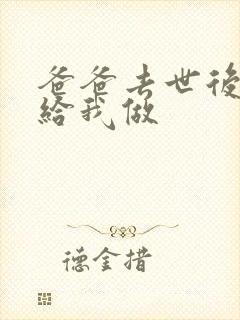 爸爸去世後
給我做
德金措